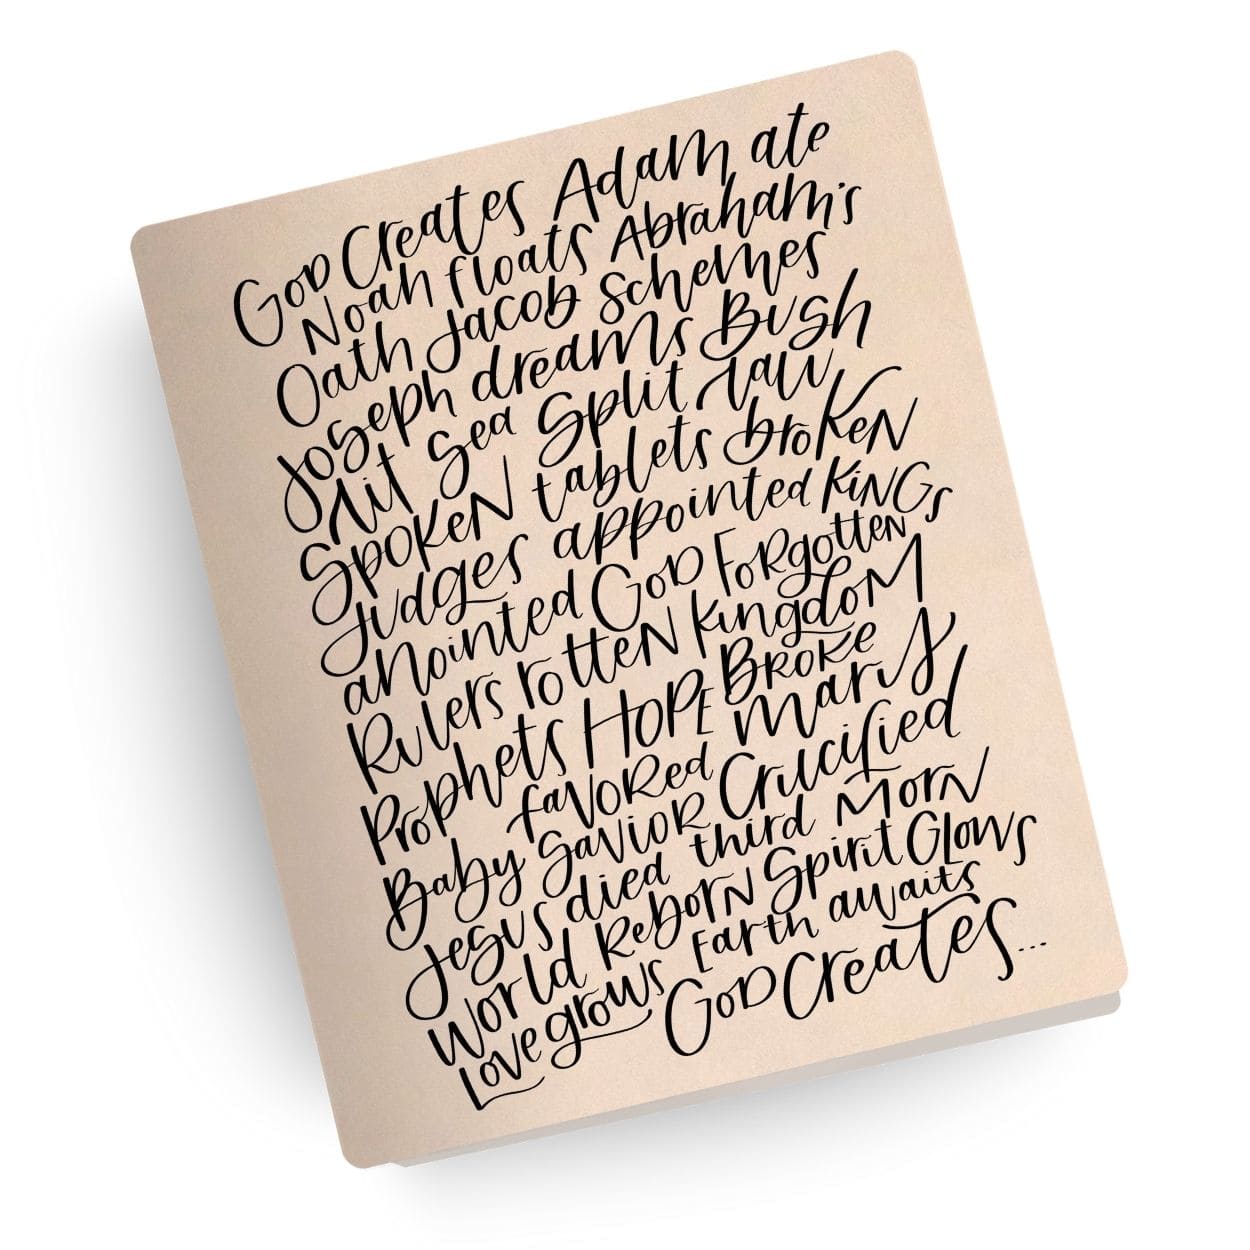 God Creates Adam ate
Noah floats Abraham's
Oath Jacob Schemes
Joseph dreams Bush
Lit Sea Split Law
Spoken tablets broken
Judges appointed Kings
anointed God Forgotten
Rulers rotten Kingdom
Broke
Prophets HOPE Mary
favored
Baby Savior Crucified
Jesus died third Morn
World Reborn Spirit Glows
Love grows Earth awaits
God Creates...